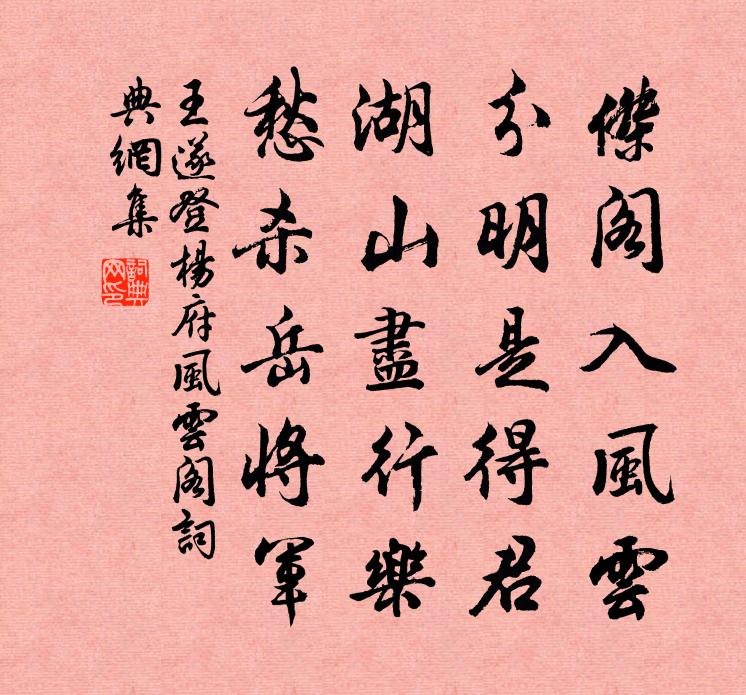 傑閣入風雲
分明是得君
湖山盡行樂
愁杀岳將軍
王遂登楊府風雲閣詞
典網集
詞典網印